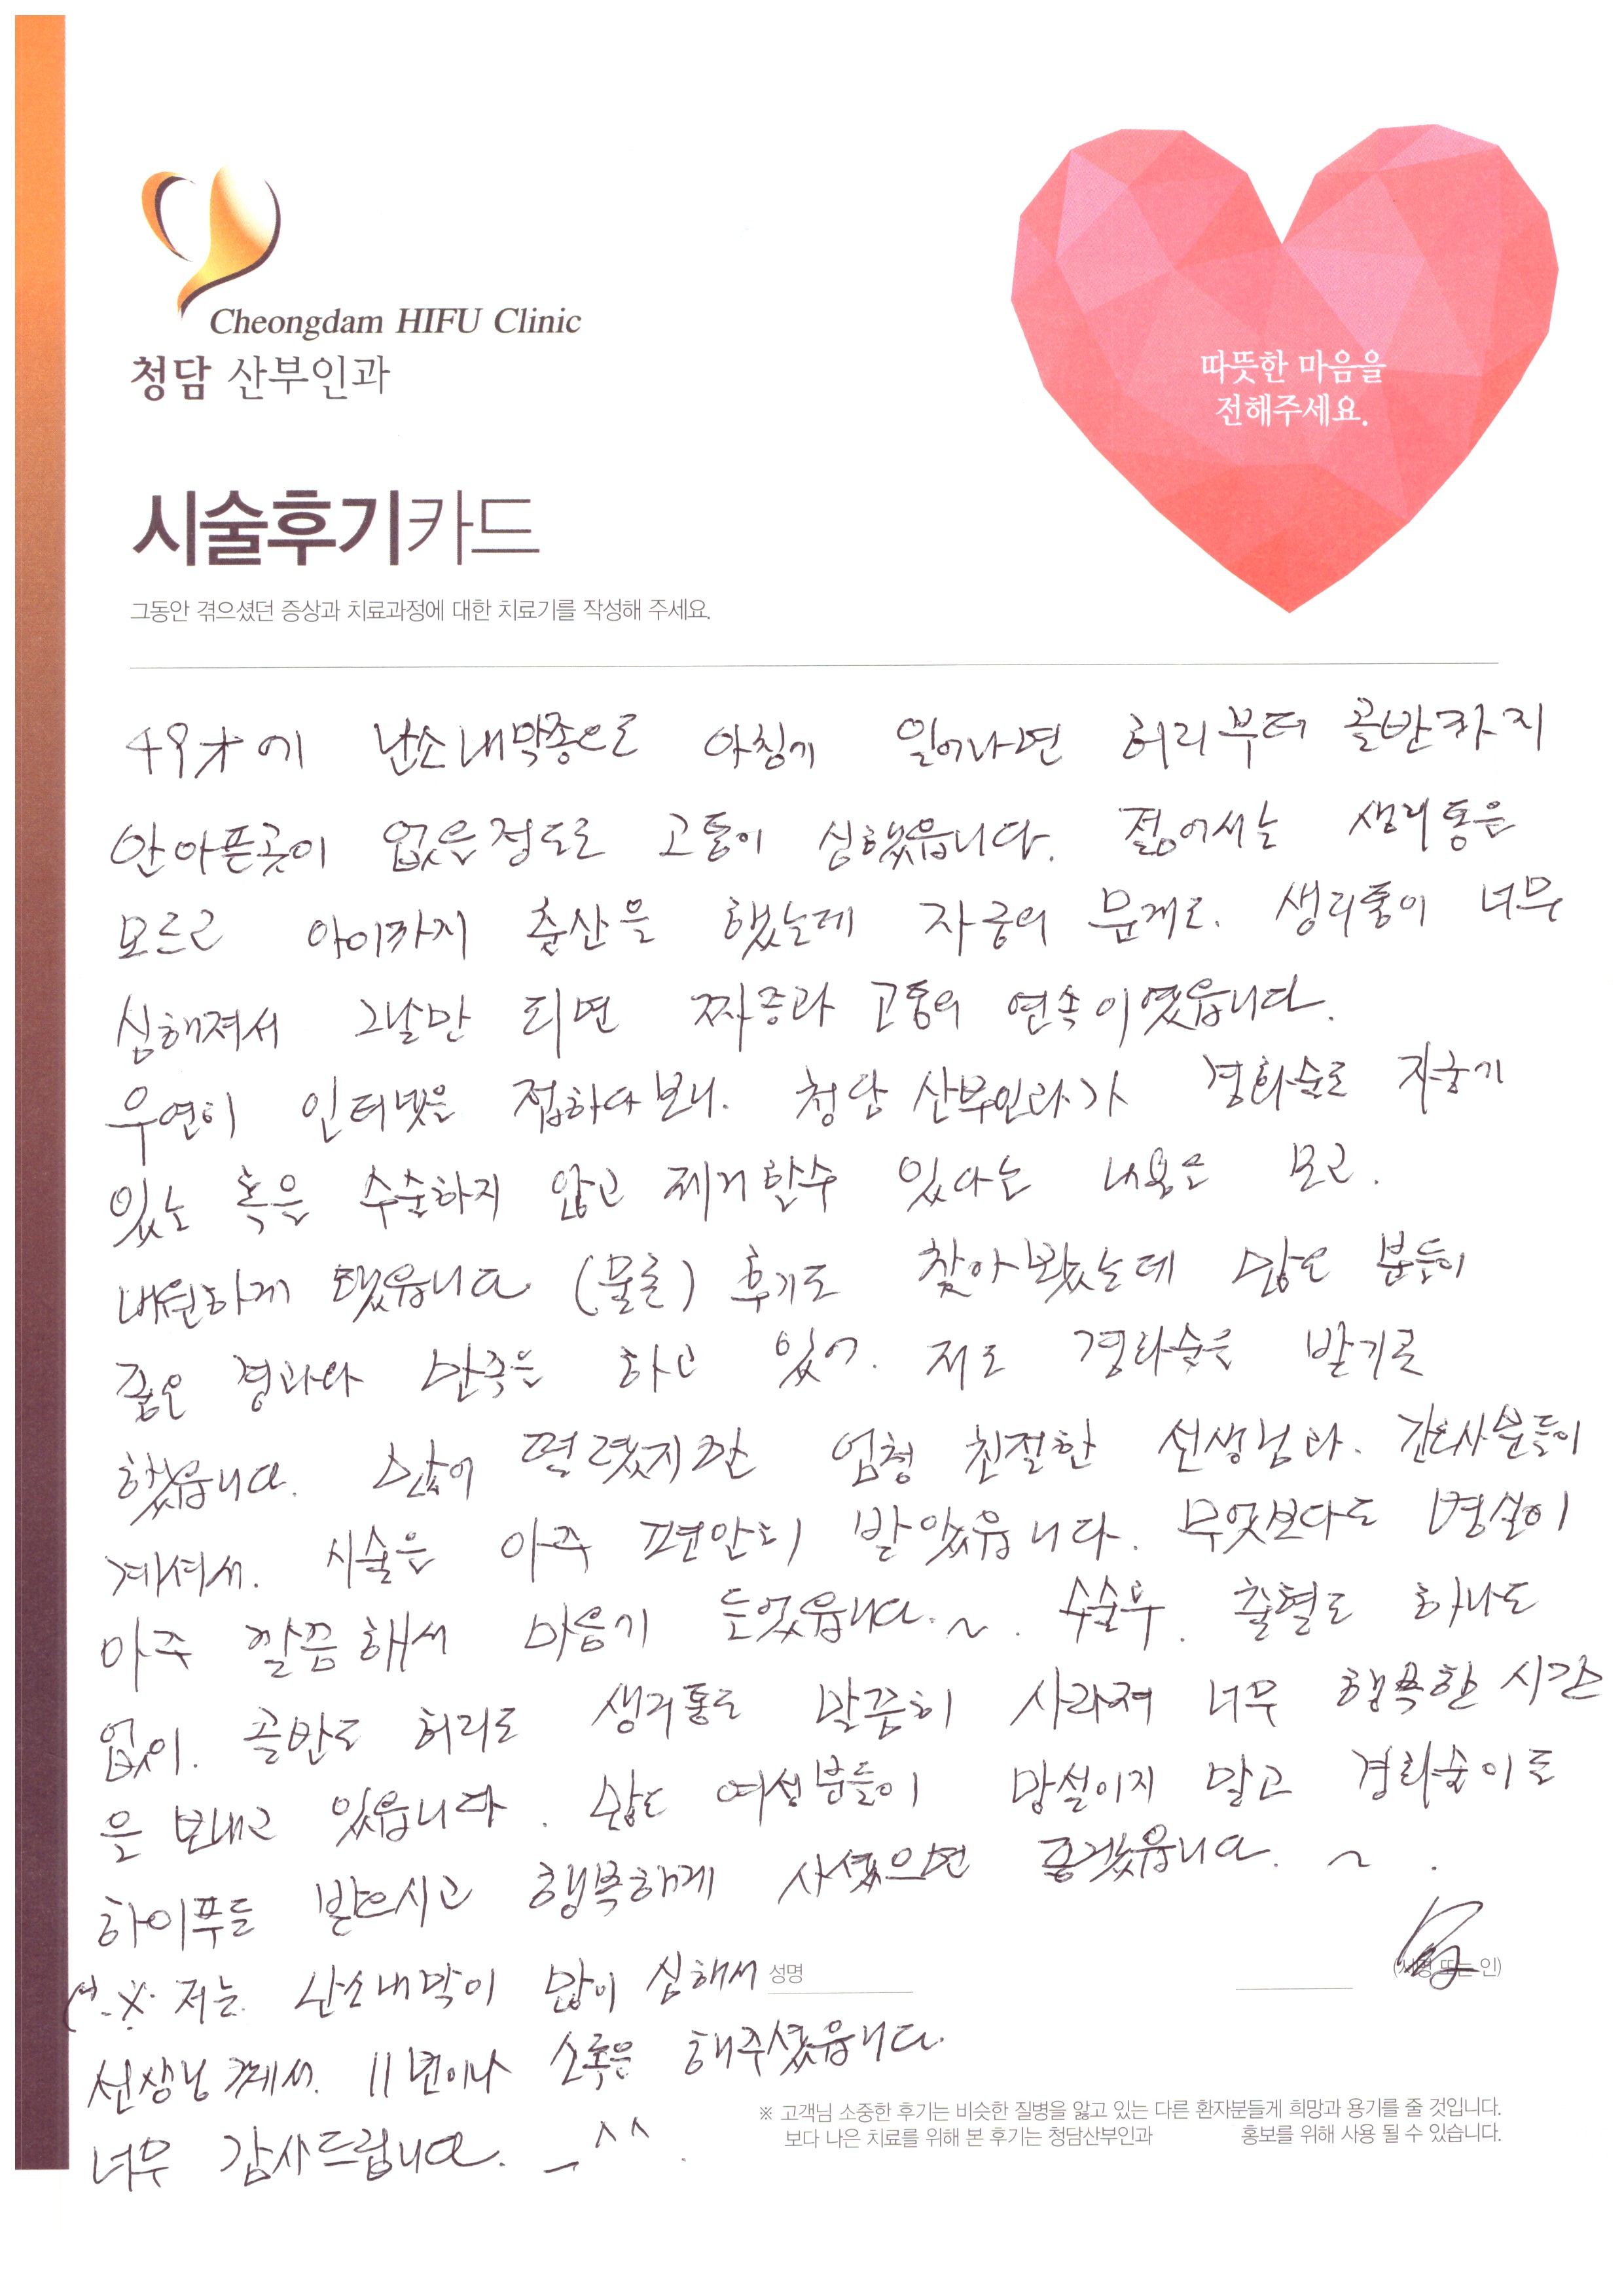 Cheongdam HIFU Clinic
청담 산부인과
따뜻한 마음을
전해주세요.
시술후기카드
그동안 겪으셨던 증상과 치료과정에 대한 치료기를 작성해 주세요.
49才에 난소내막종으로 아침에 일어나면 허리부터 골반까지
안아픈곳이 없을정도로 고통이 심했읍니다. 젊어서는 생리통은
모르고 아이까지 출산을 했는데 자궁의 문제로. 생리통이 너무
심해져서 그날만 되면 짜증과 고통의 연속이였읍니다.
우연히 인터넷을 접하다보니. 청담 산부인과가 경화술로 자궁에
있는 혹을 수술하지 않고 제거할수 있다는 내용을 보고.
내원하게 됐읍니다 (물론) 후기도 찾아봤는데 많은 분들이
좋은 결과와 만족을 하고 있어. 저도 경화술을 받기로
했읍니다. 많이 떨렸지만 엄청 친절한 선생님과. 간호사분들이
계셔서. 시술은 아주 편안히 받았읍니다. 무엇보다도 병실이
아주 깔끔해서 마음에 들었읍니다.~. 수술후. 출혈도 하나도
없이. 골반도 허리도 생리통도 말끔히 사라져 너무 행복한 시간
을 보내고 있읍니다. 많은 여성분들이 망설이지 말고 경화술이든
하이푸든 받으시고 행복하게 사셨으면 좋겠읍니다. ~ .
※ 저는 난소내막이 많이 심해서 성명
(서명 또는 인)
선생님께서. 11번이나 소독을 해주셨읍니다.
너무 감사드립니다. _ ^^.
※ 고객님 소중한 후기는 비슷한 질병을 앓고 있는 다른 환자분들께 희망과 용기를 줄 것입니다.
보다 나은 치료를 위해 본 후기는 청담산부인과 홍보를 위해 사용 될 수 있습니다.